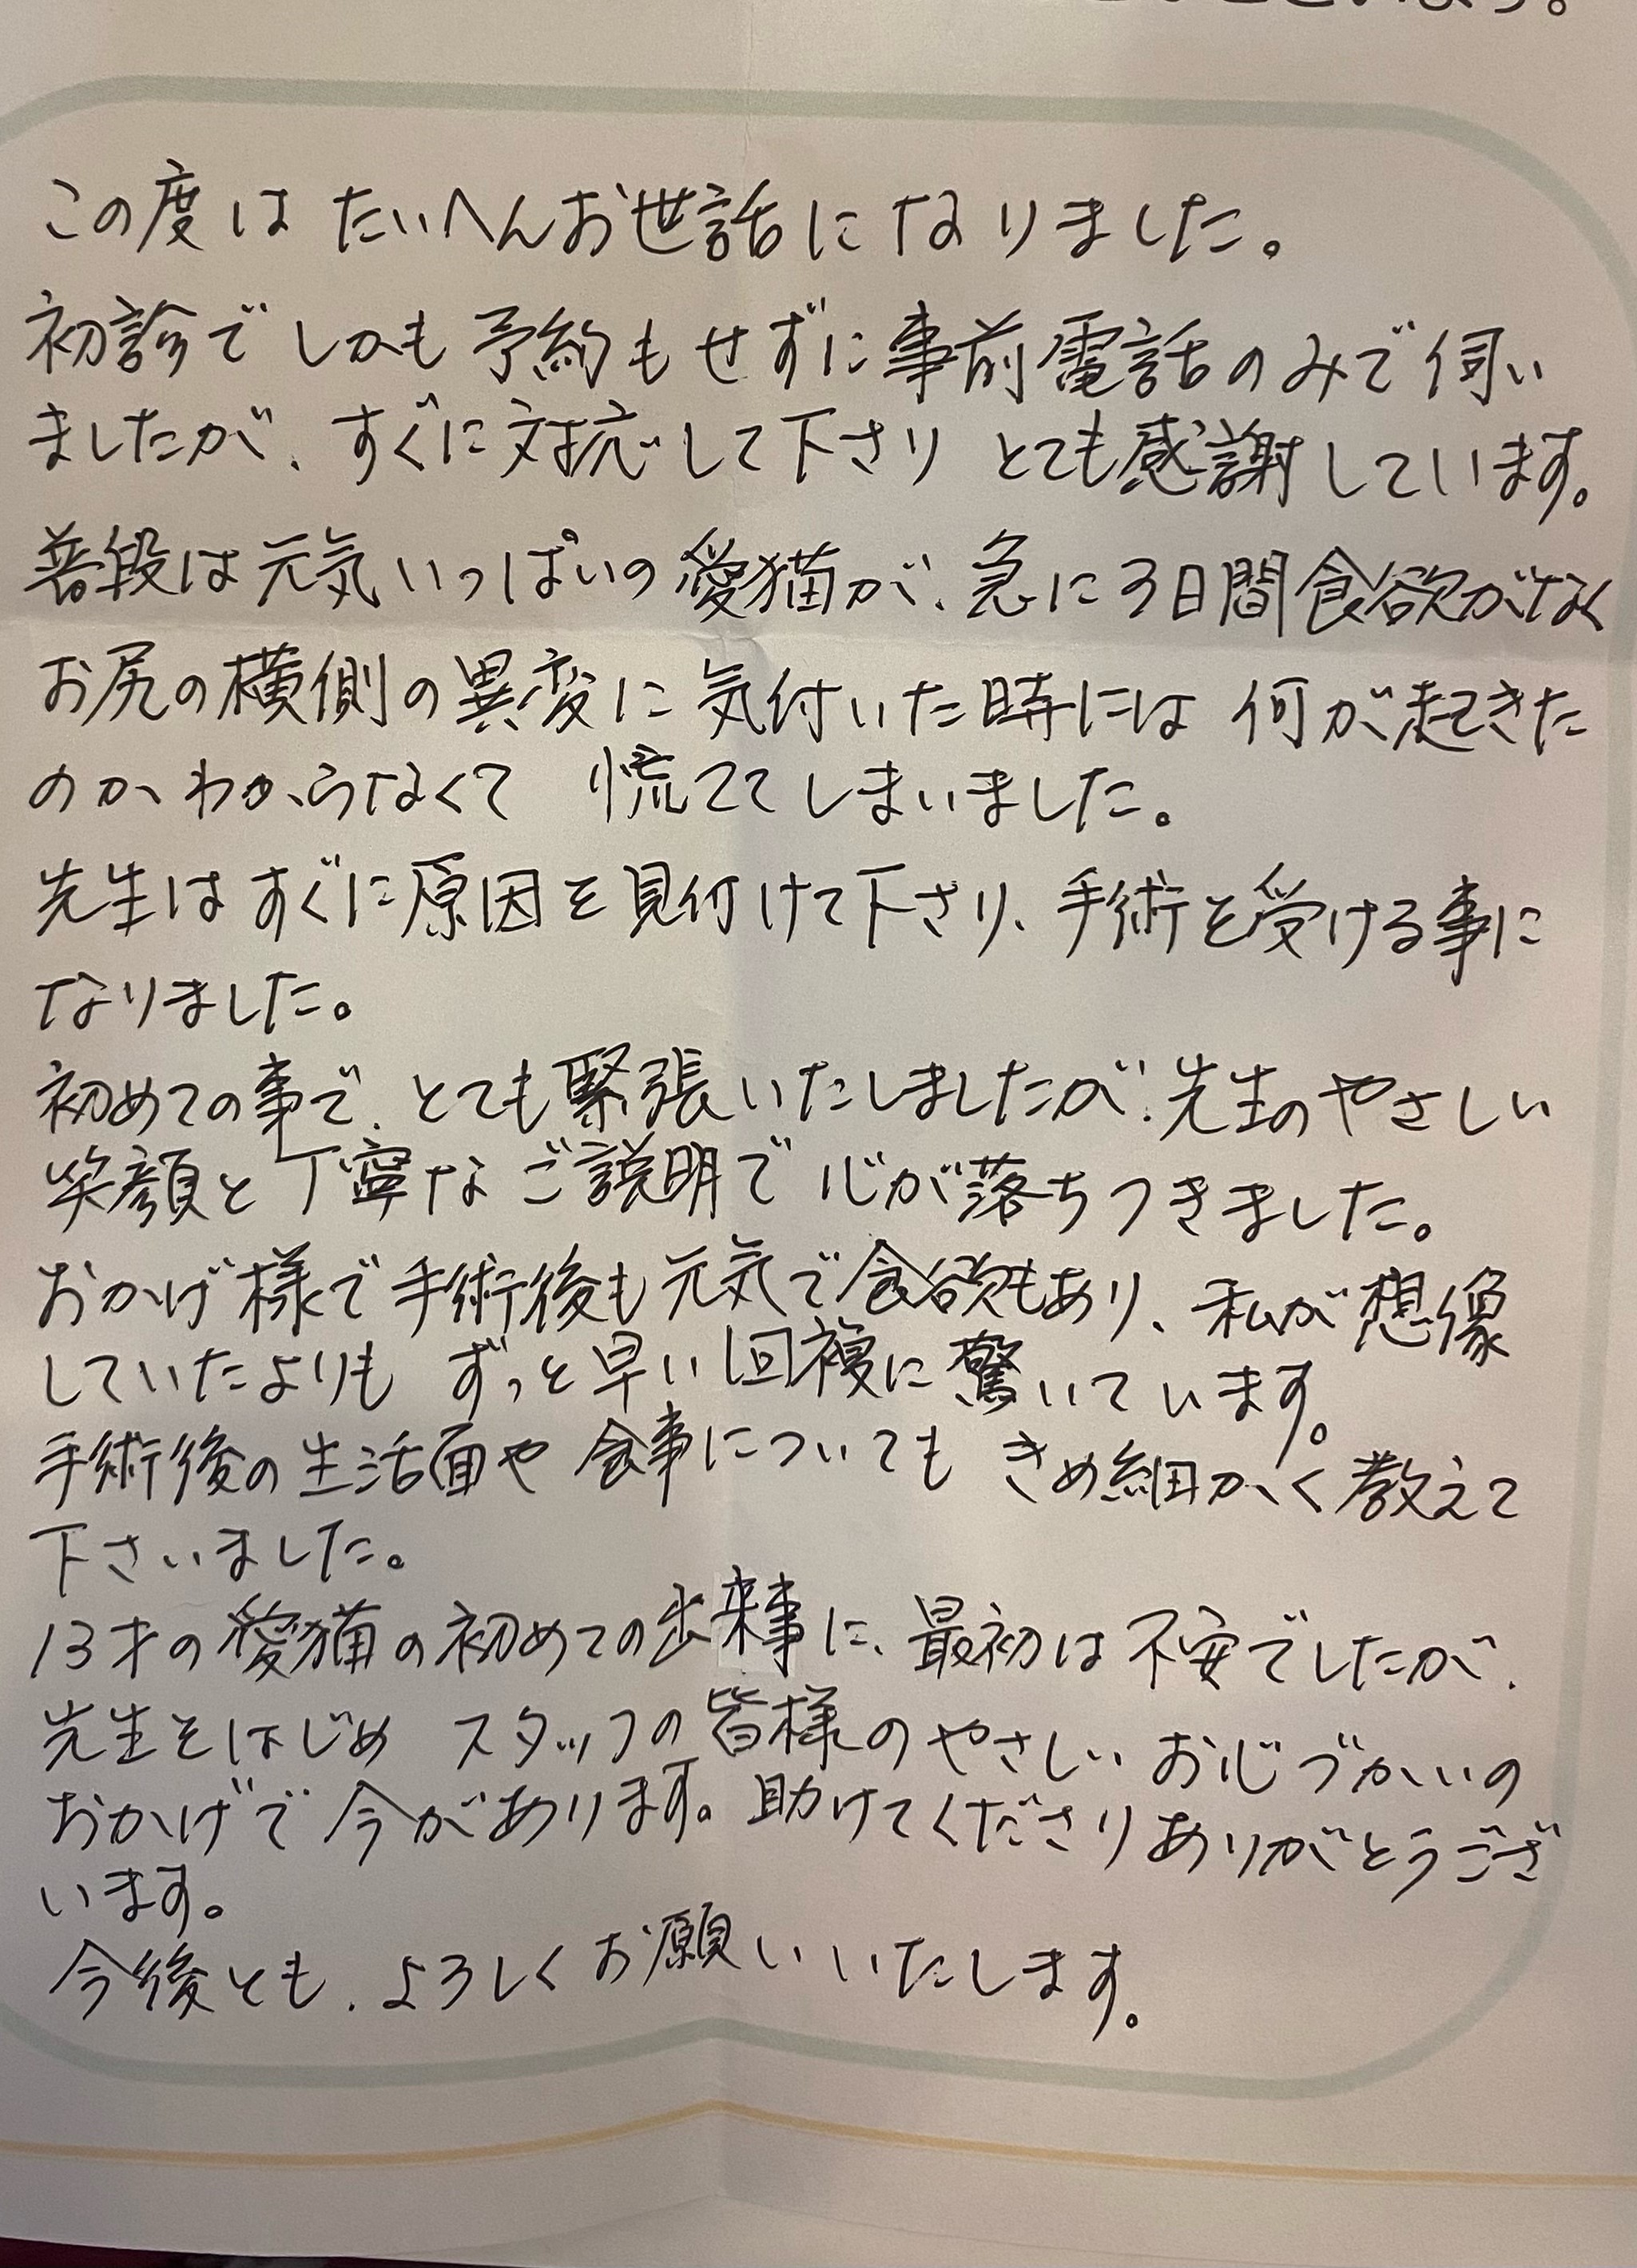 この度は たいへんお世話になりました。
初診で しかも 予約もせずに事前電話のみで伺い
ましたが、すぐに対応して下さり とても感謝しています。
普段は元気いっぱいの愛猫が、急に3日間食欲がなく
お尻の横側の異変に気付いた時には 何が起きた
のかわからなくて 慌ててしまいました。
先生はすぐに原因を見付けて下さり、手術を受ける事に
なりました。
初めての事で、とても緊張いたしましたが、先生のやさしい
笑顔と丁寧なご説明で 心が落ちつきました。
おかげ様で手術後も元気で食欲もあり、私が想像
していたよりも ずっと早い回複に驚いています。
手術後の生活面や食事についても きめ細かく教えて
下さいました。
13才の愛猫の初めての出来事に、最初は不安でしたが、
先生をはじめ スタッフの皆様のやさしい お心づかいの
おかげで今があります。助けてくださりありがとうござ
います。
今後とも、よろしくお願いいたします。